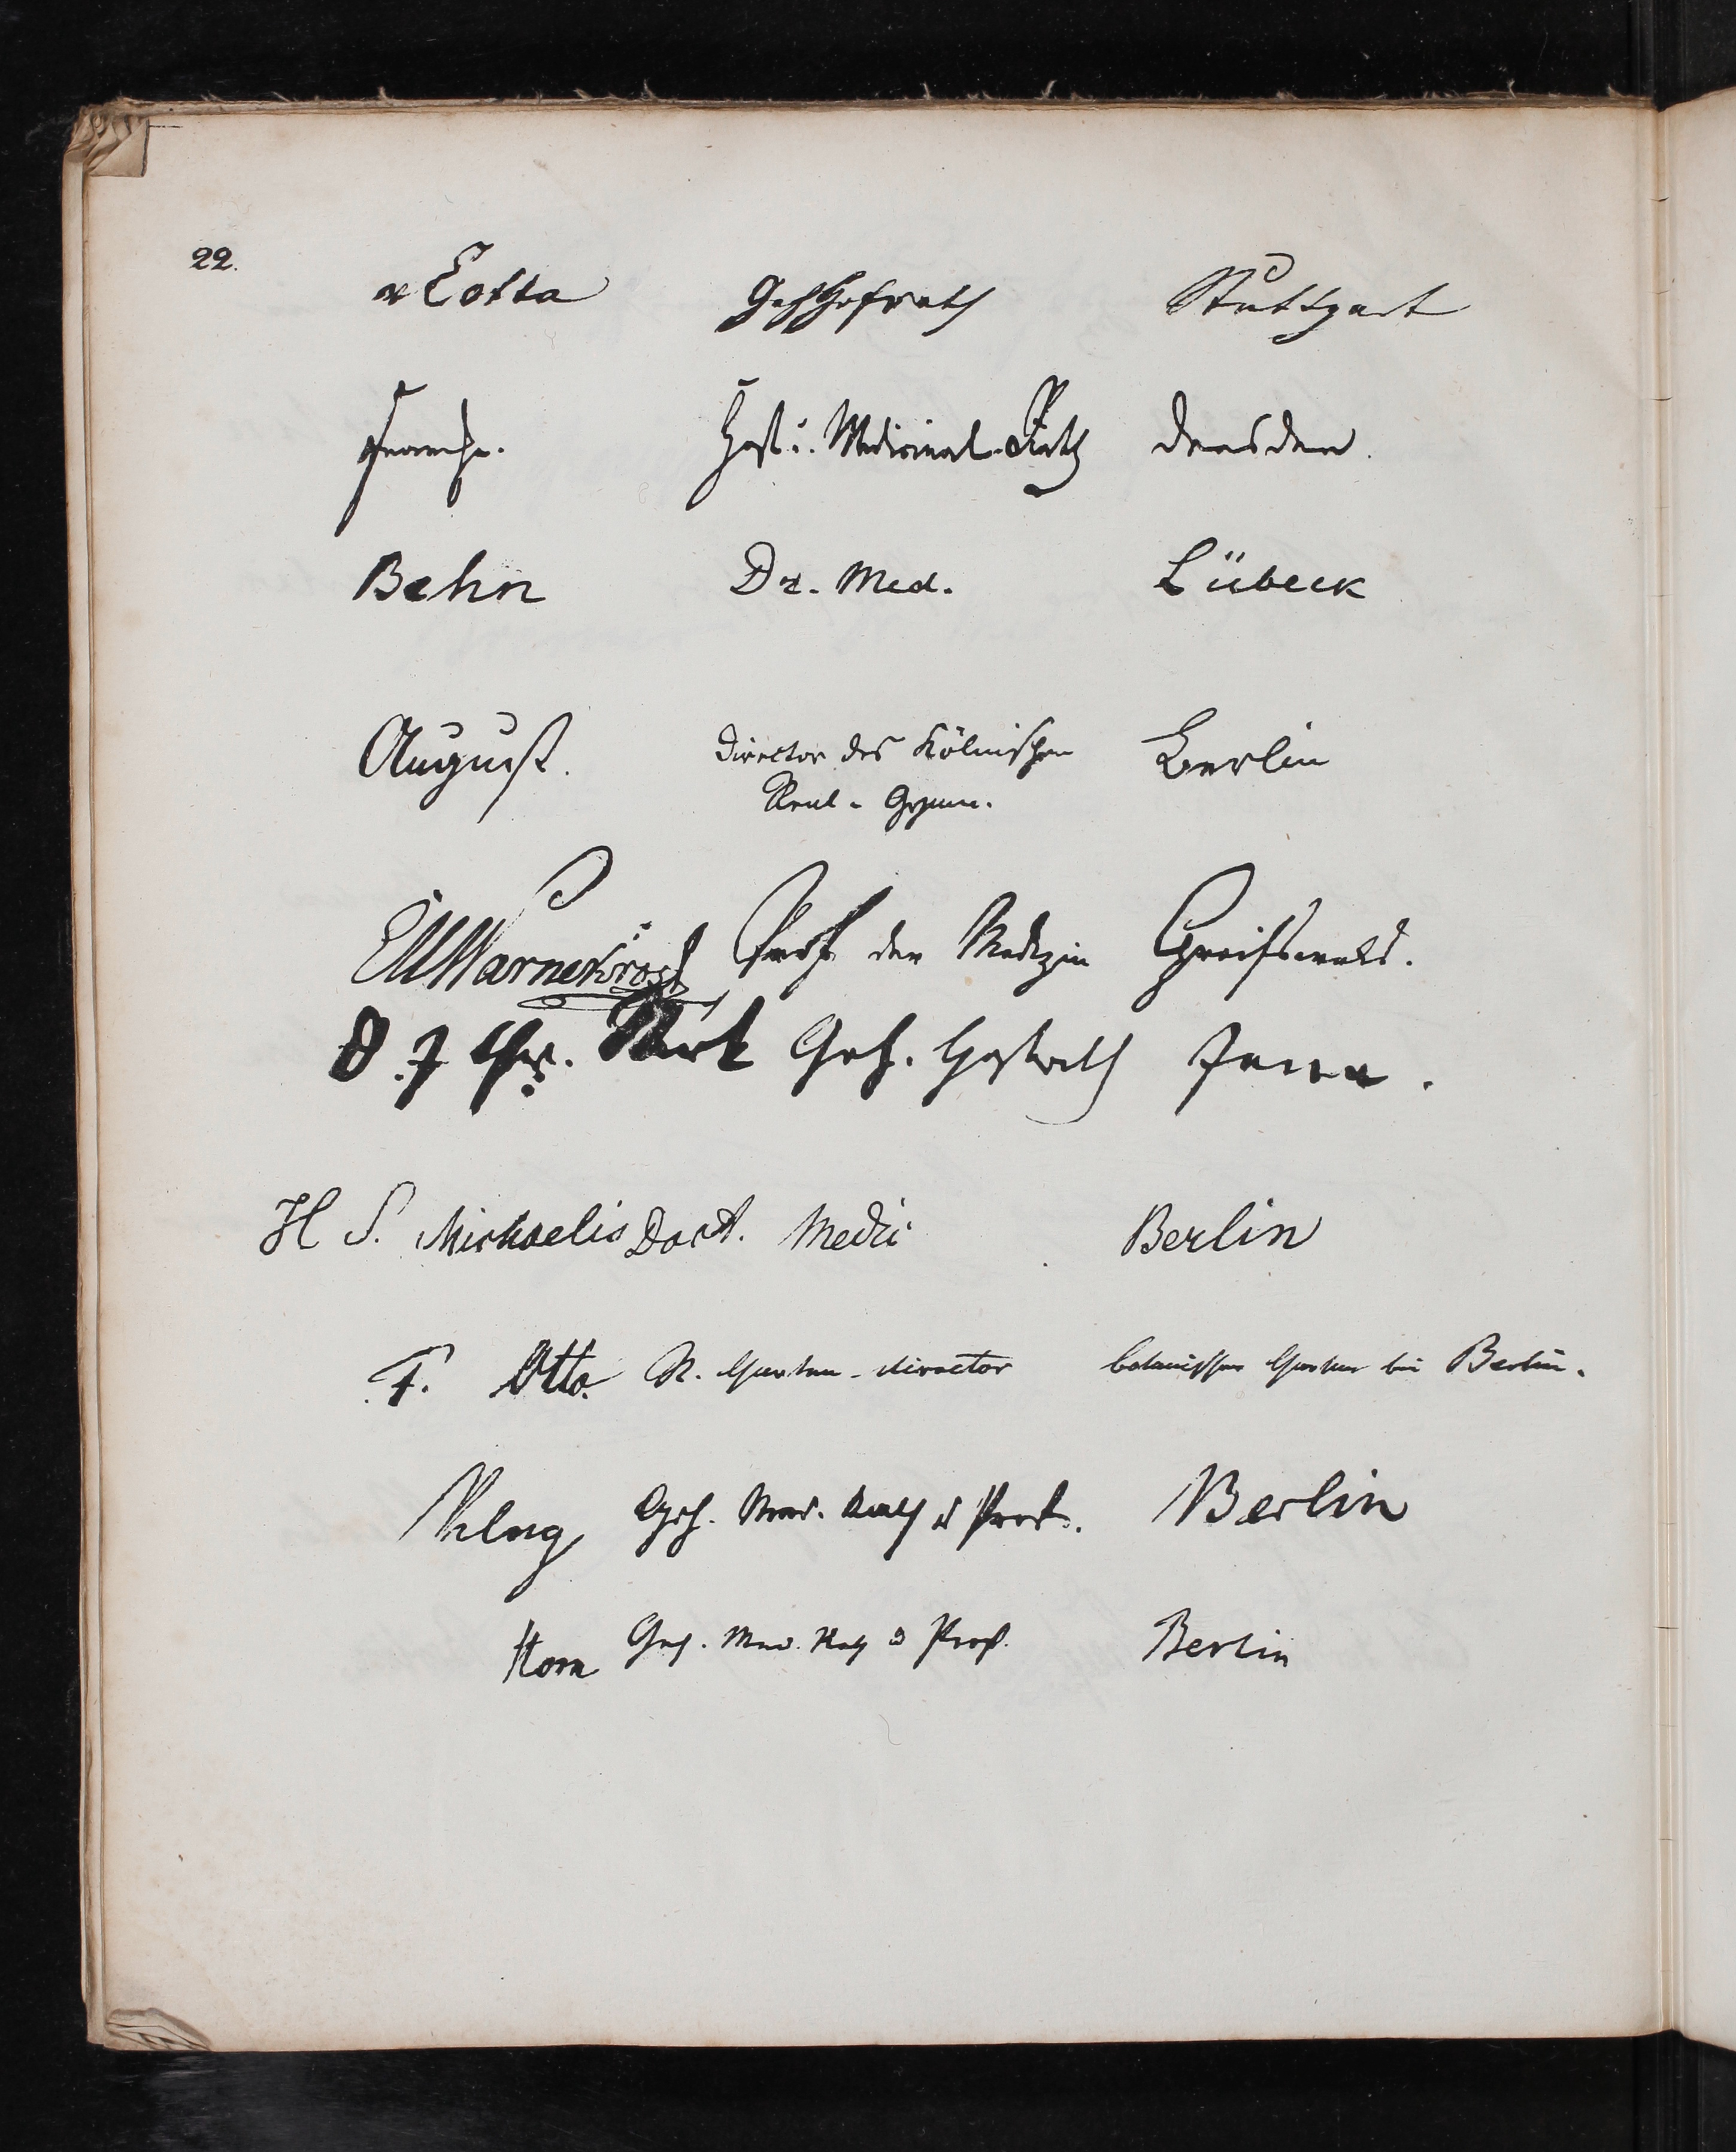 22.
v Cotta Geh Hofrath Stuttgart
Hof u. Medicinal-Rath Dresden.
Behn Dr. Med. Lübeck
August. Director des Kölnischen Berlin
Real-Gymn.
Warnekros Prof der Medizin Greifswald.
D J Chr. Stark Geh. Hofrath Jena.
H S. Michaelis Doct. Medic Berlin
F. Otto. K. Garten-director botanischer Garten bei Berlin.
Klug Geh. Med. Rath u Prof. Berlin
Horn Geh. Med. Rath u Prof. Berlin